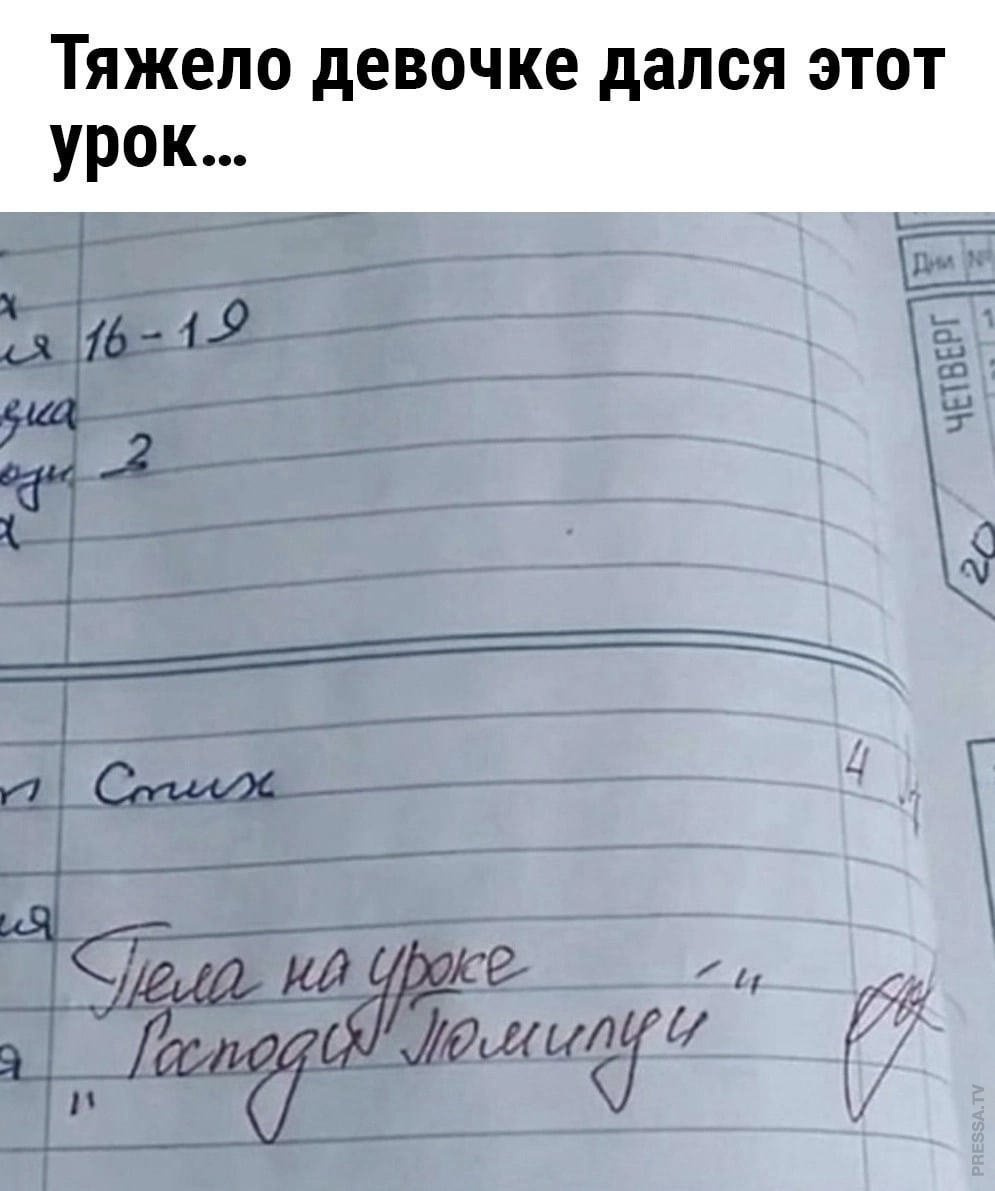 Тяжело девочке дался этот
урок...
Дни №
ЧЕТВЕРГ
16-19
2
20
Стих 4
Пела на уроке
"Господи Помилуй"
PRESSA.TV